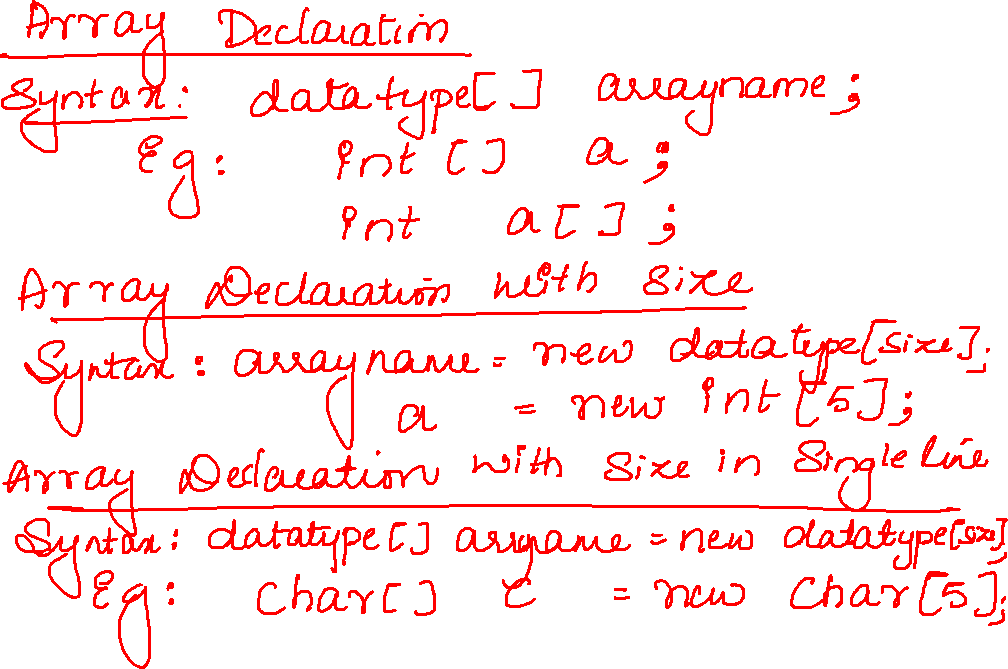 Array Declaration
Syntax: datatype[] arrayname;
Eg: int [] a;
int a[];
Array Declaration with size
Syntax: arrayname = new datatype[size];
a = new int [5];
Array Declaration with size in Single line
Syntax: datatype[] arrayname = new datatype[size];
Eg: char[] c = new char[5];